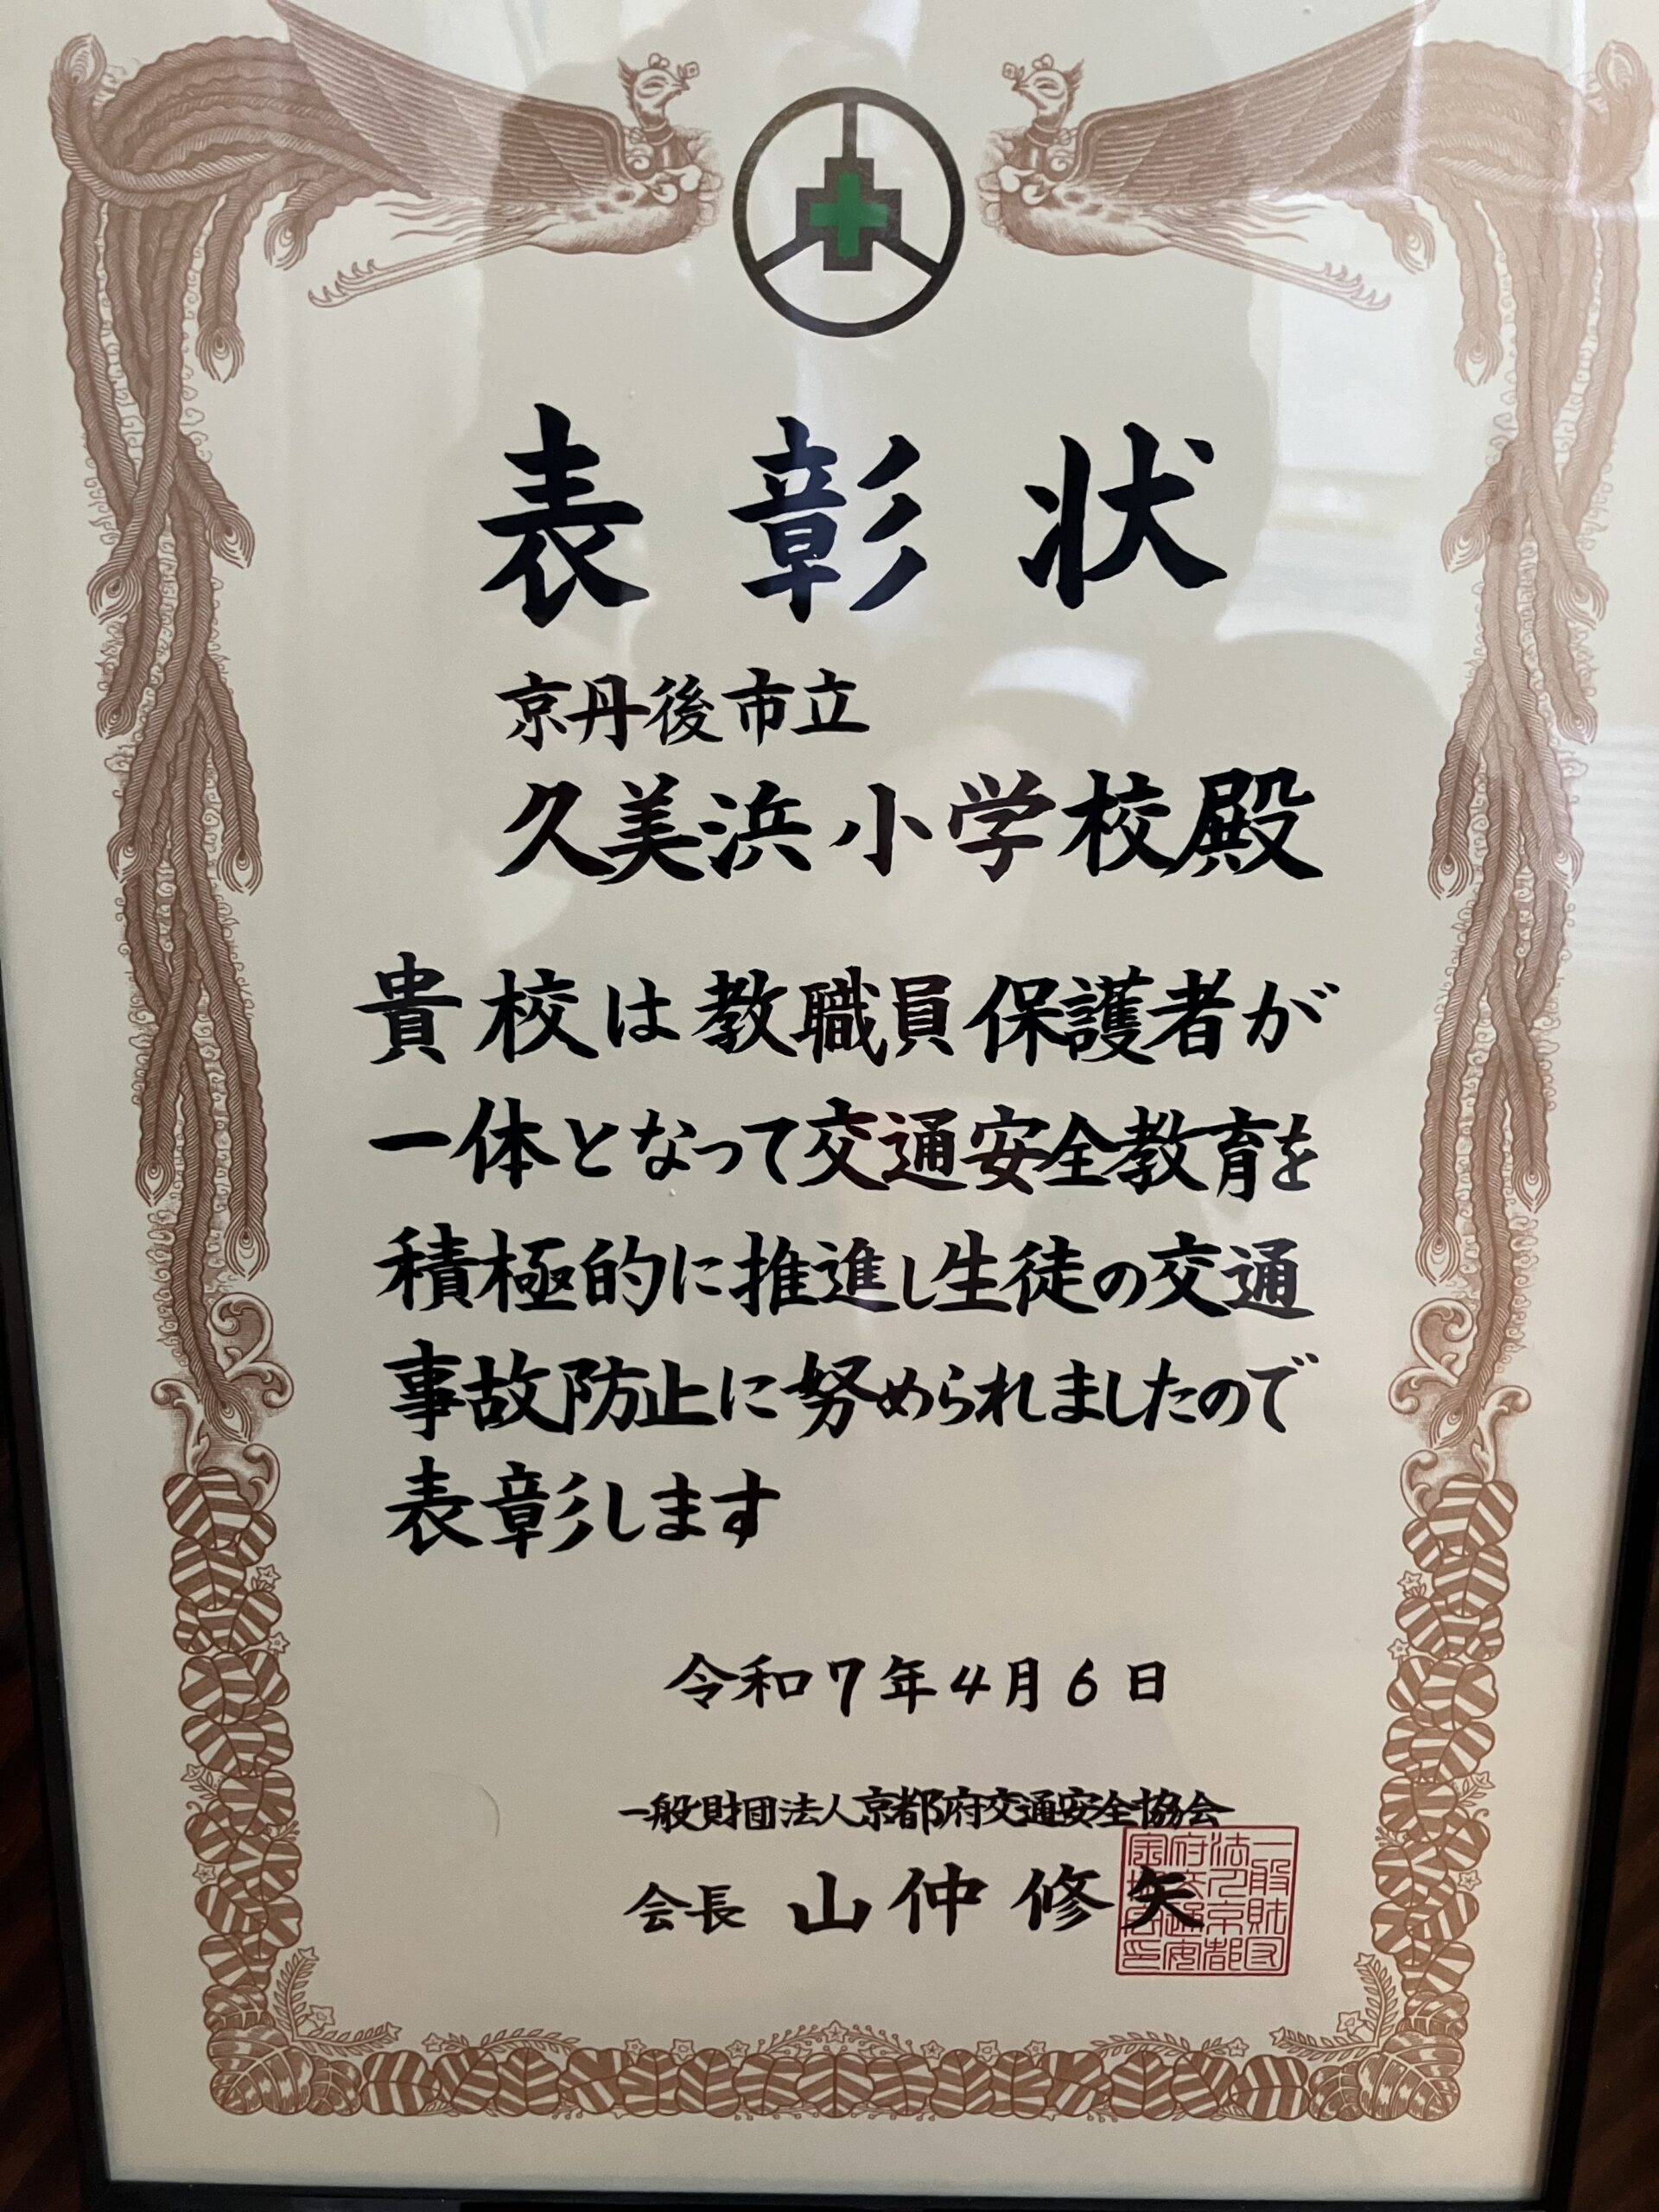 表彰状
京丹後市立
久美浜小学校殿
貴校は教職員保護者が
一体となって交通安全教育を
積極的に推進し生徒の交通
事故防止に努められましたので
表彰します
令和7年4月6日
一般財団法人京都府交通安全協会
会長 山仲修矢